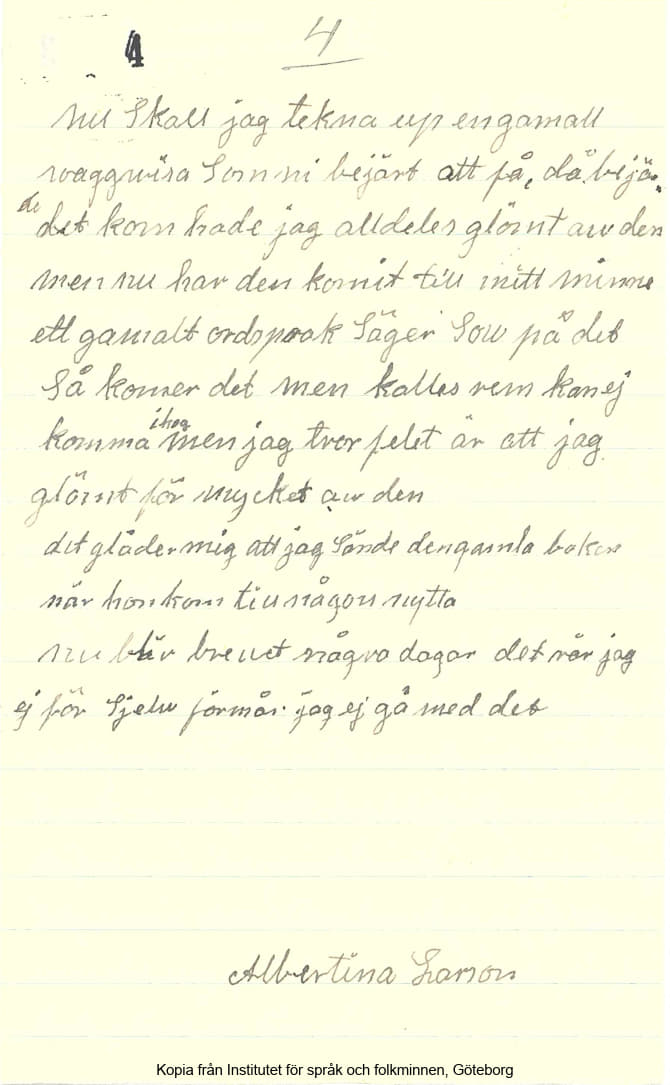 4 4
nu Skall jag tekna up en gamall
waggwisa Som ni bejärt att få, då bejä-
de
det kom hade jag alldeles glömt aw den
men nu har den komit till mitt minne
ett gamalt ordspraak Säger Sow på det
Så komer det men kalles rem kan ej
ihog
komma men jag tror felet är att jag
glömt för mycket aw den
det gläder mig att jag Sände den gamla boken
när hon kom till någon nytta
nu blir brevet några dagar det rår jag
ej för Sjelw förmår jag ej gå med det
Albertina Larson
Kopia från Institutet för språk och folkminnen, Göteborg